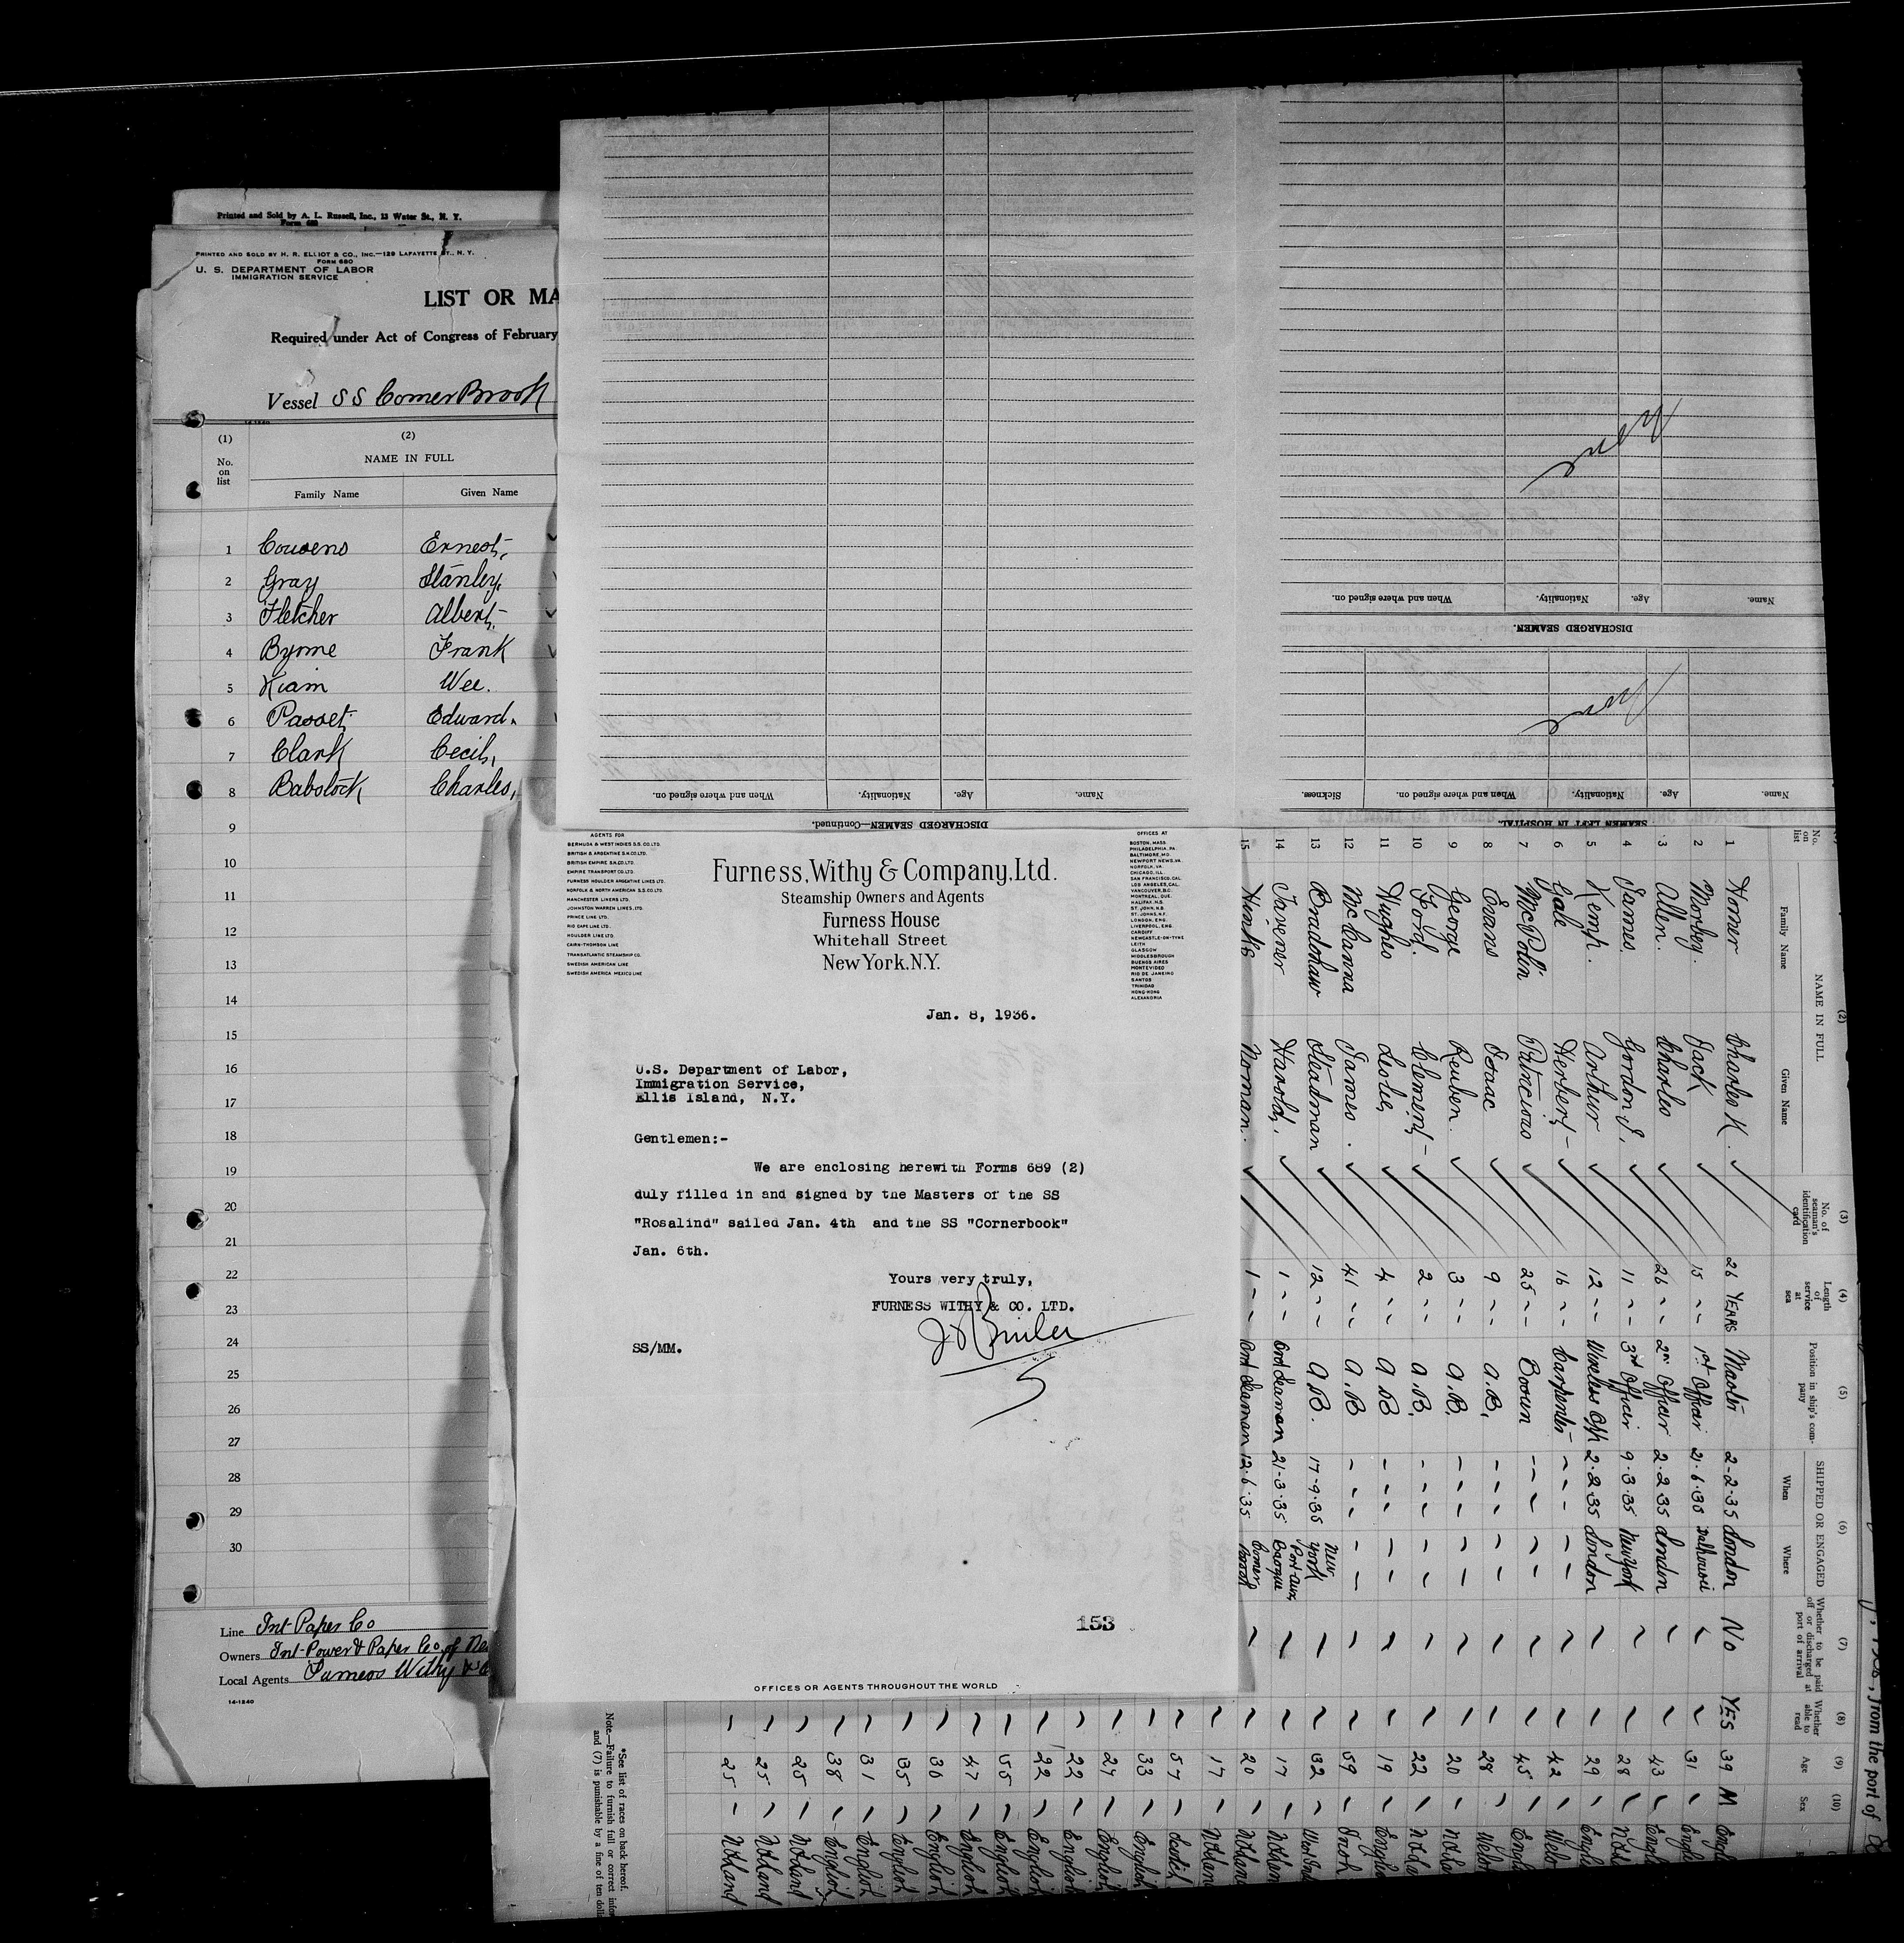 Printed and Sold by A. L. Russell, Inc., 13 Water St., N. Y.
Form 680
PRINTED AND SOLD BY H. R. ELLIOT & CO., INC.—129 LAFAYETTE ST., N. Y.
FORM 680
U. S. DEPARTMENT OF LABOR
IMMIGRATION SERVICE
LIST OR MA
Required under Act of Congress of February
Vessel SS Corner Brook
14-1240
(1) (2)
No. on list NAME IN FULL
Family Name Given Name
1 Cousens Ernest,
2 Gray Stanley,
3 Fletcher Albert,
4 Byrne Frank
5 Kiam Wee.
6 Passet Edward.
7 Clark Cecil,
8 Babstock Charles,
9
10
11
12
13
14
15
16
17
18
19
20
21
22
23
24
25
26
27
28
29
30
Line Int Paper Co
Owners Int-Power & Paper Co of Ne
Local Agents Furness Withy & C
14-1240
Name. Age. Nationality. When and where signed on.
DISCHARGED SEAMEN.
Name. Age. Nationality. When and where signed on. Sickness.
SEAMEN LEFT IN HOSPITAL.
Name. Age. Nationality. When and where signed on.
DISCHARGED SEAMEN—Continued.
AGENTS FOR
BERMUDA & WEST INDIES S.S. CO. LTD.
BRITISH & ARGENTINE S.N. CO. LTD.
BRITISH EMPIRE S.N. CO. LTD.
EMPIRE TRANSPORT CO. LTD.
FURNESS HOULDER ARGENTINE LINES LTD.
NORFOLK & NORTH AMERICAN S.S. CO. LTD.
MANCHESTER LINERS LTD.
JOHNSTON WARREN LINES, LTD.
PRINCE LINE LTD.
RIO CAPE LINE LTD.
HOULDER LINE LTD.
CAIRN-THOMSON LINE
TRANSATLANTIC STEAMSHIP CO.
SWEDISH AMERICAN LINE
SWEDISH AMERICA MEXICO LINE
Furness, Withy & Company, Ltd.
Steamship Owners and Agents
Furness House
Whitehall Street
New York. N.Y.
OFFICES AT
BOSTON, MASS.
PHILADELPHIA, PA.
BALTIMORE, MD.
NEWPORT NEWS, VA.
NORFOLK, VA.
CHICAGO, ILL.
SAN FRANCISCO, CAL.
LOS ANGELES, CAL.
VANCOUVER, B.C.
MONTREAL, QUE.
HALIFAX, N.S.
ST. JOHN, N.B.
ST. JOHNS, N.F.
LONDON, ENG.
LIVERPOOL, ENG.
CARDIFF
NEWCASTLE-ON-TYNE
LEITH
GLASGOW
MIDDLESBROUGH
BUENOS AIRES
MONTEVIDEO
RIO DE JANEIRO
SANTOS
TRINIDAD
HONG-KONG
ALEXANDRIA
Jan. 8, 1936.
U.S. Department of Labor,
Immigration Service,
Ellis Island, N.Y.
Gentlemen:-
We are enclosing herewith Forms 689 (2)
duly filled in and signed by the Masters of the SS
"Rosalind" sailed Jan. 4th and the SS "Cornerbook"
Jan. 6th.
Yours very truly,
FURNESS WITHY & CO. LTD.
SS/MM.
153
OFFICES OR AGENTS THROUGHOUT THE WORLD
, from the port of
(2) (3) (4) (5) (6) (7) (8) (9) (10)
No. on list NAME IN FULL No. of seaman's identification card Length of service at sea Position in ship's company SHIPPED OR ENGAGED Whether to be paid off or discharged at port of arrival Whether able to read Age Sex
Family Name Given Name When Where
1 Horner Charles K. 26 YEARS Master 2-2-35 London No YES 39 M Engl
2 Morbey. Jack 15 " " 1st Officer 21.6.35 Dalhousie 31 Engli
3 Allen. Charles 26 " " 2nd Officer 2.2.35 London 43 Engli
4 James. Gordon S. 11 " " 3rd Officer 9.3.35 New York 28
5 Kemp. Arthur 12 " " Wireless Opp 2.2.35 London 29 Engli
6 Gale Herbert 16 " " Carpenter " " " " 42 Wels
7 McPolin Patricious 25 " " Bosun " " " " 45 Engli
8 Evans Isaac 9 " " A.B. " " " " 28 Wels
9 George Reuben. 3 " " A.B. " " " " 20 Nfld
10 Ford. Clement 2 " " A.B. " " " " 22 Nfla
11 Hughes Leslie 4 " " A.B " " " " 19 Englis
12 McCanna James. 41 " " A.B " " " " 59
13 Bradshaw Steadman 12 " " A.B. 17-9-35 New York 32 West Ind
14 Taverner Harold. 1 " " Ord Seaman 21-3-35 Port-aux-Basque 17 Nfldan
15 Hinks Norman. 1 " " Ord Seaman 12.6.35 Corner Brook 20 Nfldand
17 Nfldan
57 Scotch
33 English
27 English
22 English
22 English
55 English
47 English
30 English
35 English
31 English
38 English
25 Nfldand
25 Nfldand
25 Nfldand
*See list of races on back hereof.
Note.—Failure to furnish full or correct infor
and (7) is punishable by a fine of ten dolla